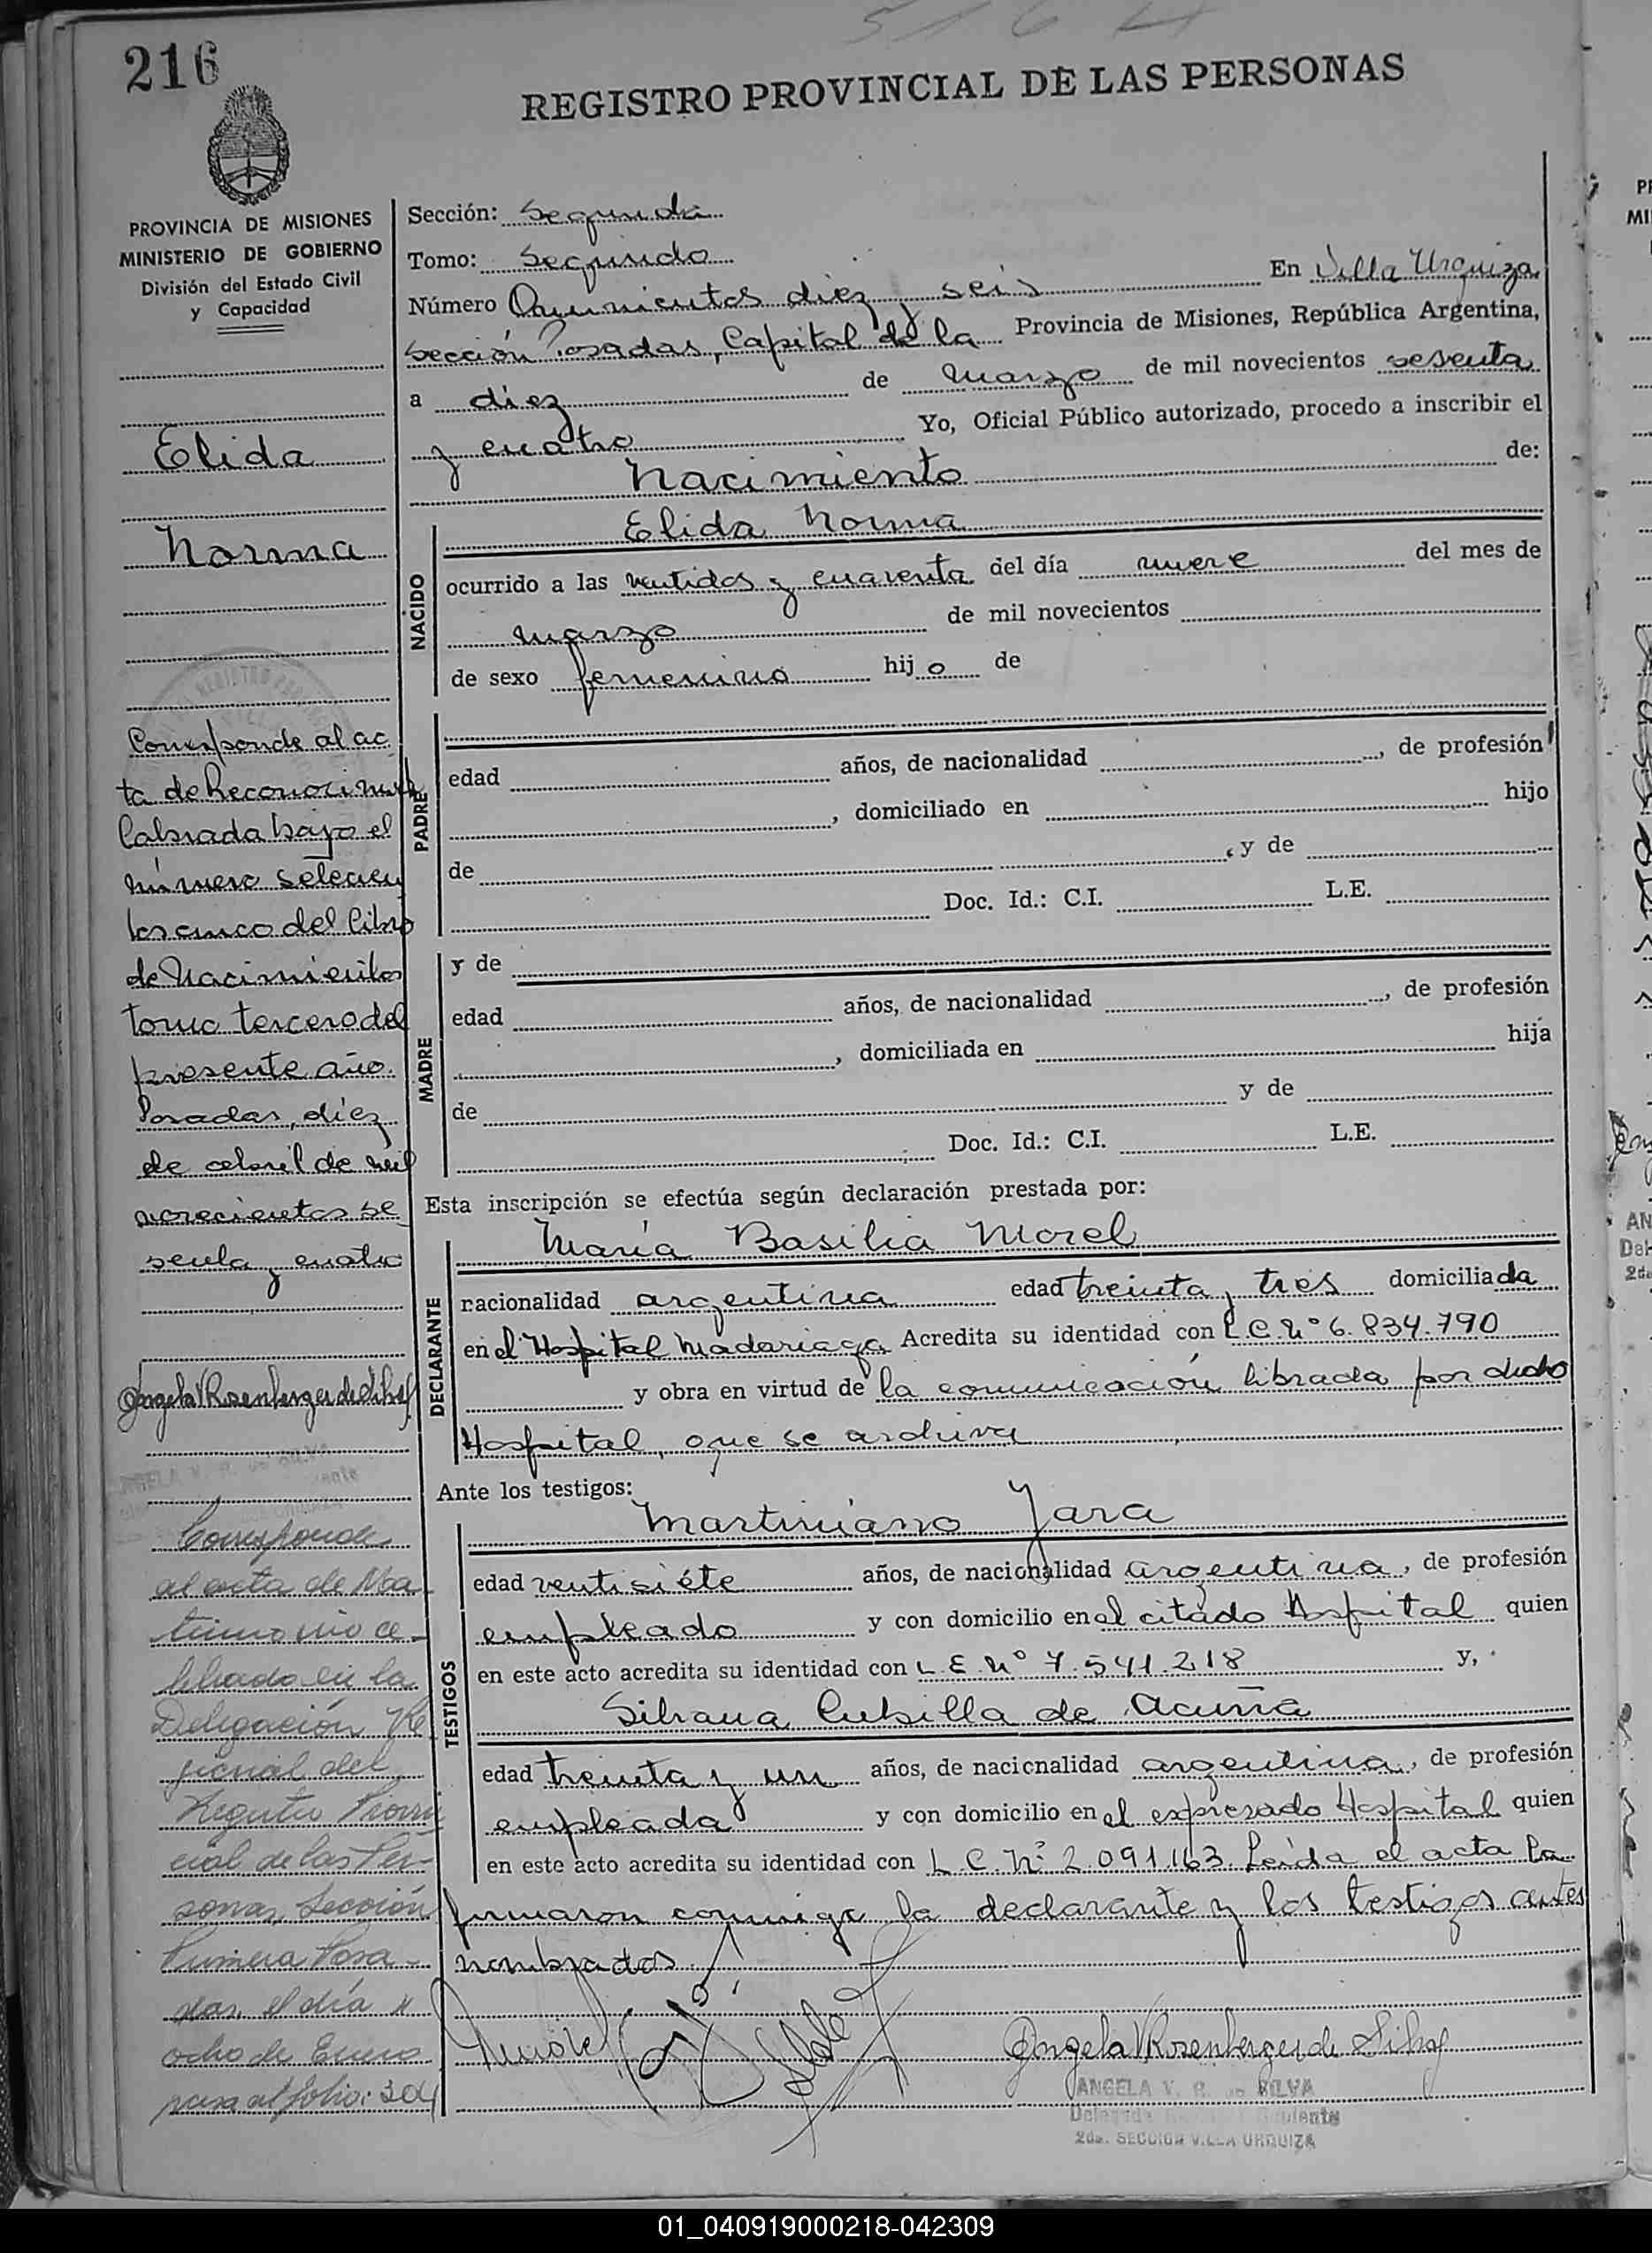 216
REGISTRO PROVINCIAL DE LAS PERSONAS
PROVINCIA DE MISIONES
MINISTERIO DE GOBIERNO
División del Estado Civil
y Capacidad
Elida
Norma
Corresponde al ac
ta de Reconocimien
labrada bajo el
número setecien
tos cinco del libro
de Nacimientos
tomo tercero del
presente año.
Posadas, diez
de abril de mil
novecientos se
senta y cuatro
Angela V Rosenberger de Silva
Corresponde
al acta de Ma
trimonio ce-
lebrado en la
Delegación Re
gional del
Registro Provin
cial de las Per-
sonas, Sección
Primera Posa-
das, el día
ocho de Enero
pasa al folio: 304
Sección: Segunda
Tomo: Segundo
Número Quinientos diez y seis En Villa Urquiza
Sección Posadas, Capital de la Provincia de Misiones, República Argentina,
a diez de Marzo de mil novecientos sesenta
y cuatro Yo, Oficial Público autorizado, procedo a inscribir el
Nacimiento de:
NACIDO
Elida Norma
ocurrido a las ventidos y cuarenta del día nueve del mes de
marzo de mil novecientos
de sexo femenino hijo de
PADRE
edad años, de nacionalidad , de profesión
, domiciliado en hijo
de , y de
Doc. Id.: C.I. L.E.
MADRE
y de
edad años, de nacionalidad , de profesión
, domiciliada en hija
de y de
Doc. Id.: C.I. L.E.
Esta inscripción se efectúa según declaración prestada por:
DECLARANTE
María Basilia Morel
nacionalidad argentina edad treinta y tres domiciliada
en el Hospital Madariaga Acredita su identidad con L.C. Nº 6.834.790
y obra en virtud de la comunicación librada por dicho
Hospital, que se archiva
Ante los testigos:
TESTIGOS
Martiniano Jara
edad ventisiéte años, de nacionalidad argentina, de profesión
empleado y con domicilio en el citado Hospital quien
en este acto acredita su identidad con L E Nº 7.541.218 y,
Silvana Cubilla de Acuña
edad treinta y un años, de nacionalidad argentina, de profesión
empleada y con domicilio en el expresado Hospital quien
en este acto acredita su identidad con L C. Nº 2.091.163. Leída el acta la
firmaron conmigo la declarante y los testigos antes
nombrados.
Angela V Rosenberger de Silva
ANGELA V. R. de SILVA
2da. SECCION VILLA URQUIZA
01_040919000218-042309